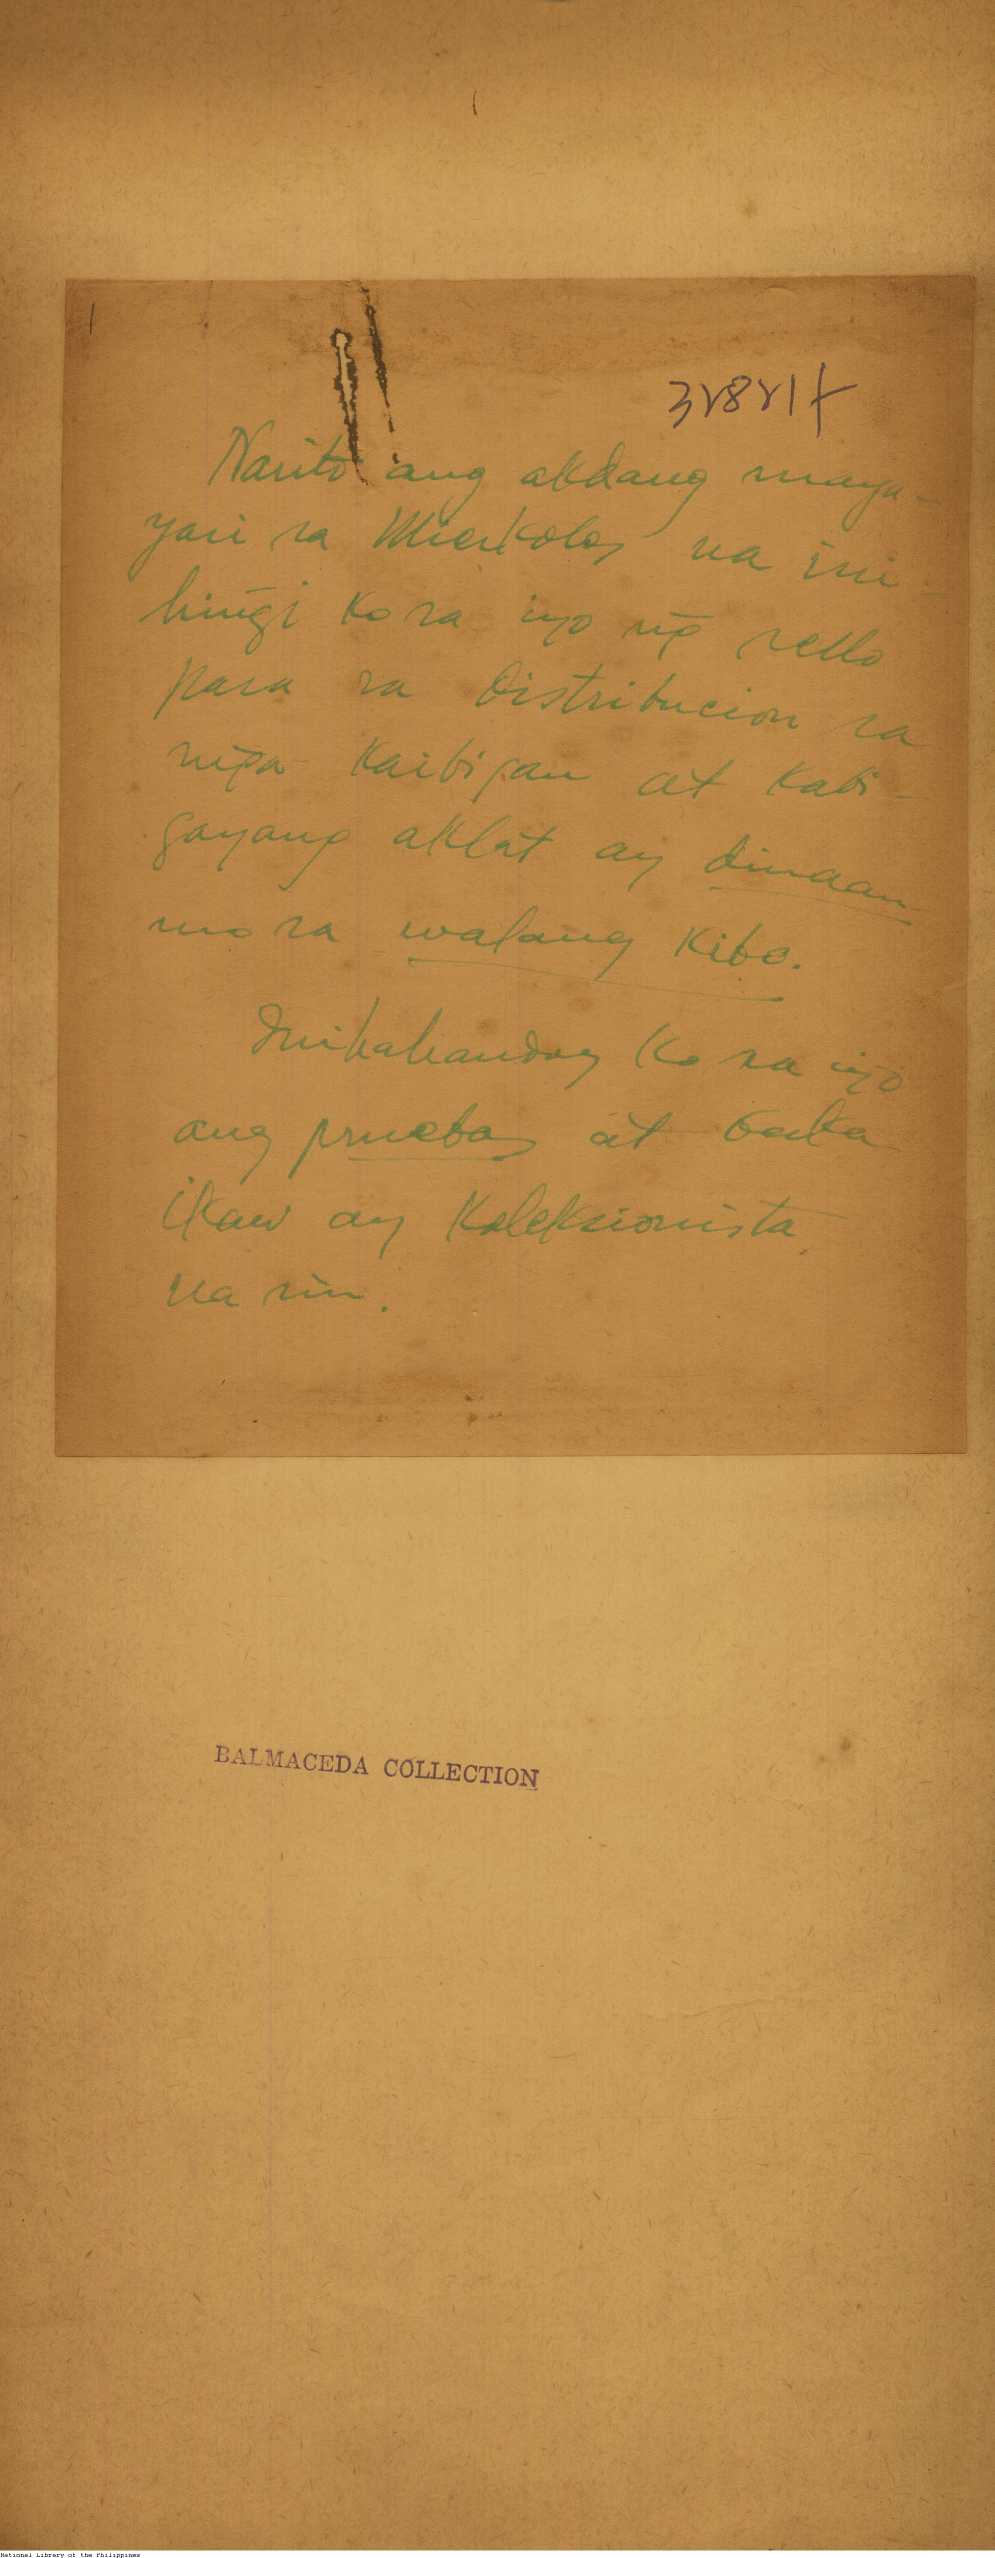 328217
Narito ang akdang maya-
yari sa Mierkoles na ini-
hingi ko sa iyo ng̃ sello
para sa distribucion sa
mg̃a kaibigan at kabi-
gayang aklat ay dinaan
mo sa walang kibo.
Inihahandog ko sa iyo
ang pruebas at baka
ikaw ay koleksionista
na rin.
BALMACEDA COLLECTION
National Library of the Philippines